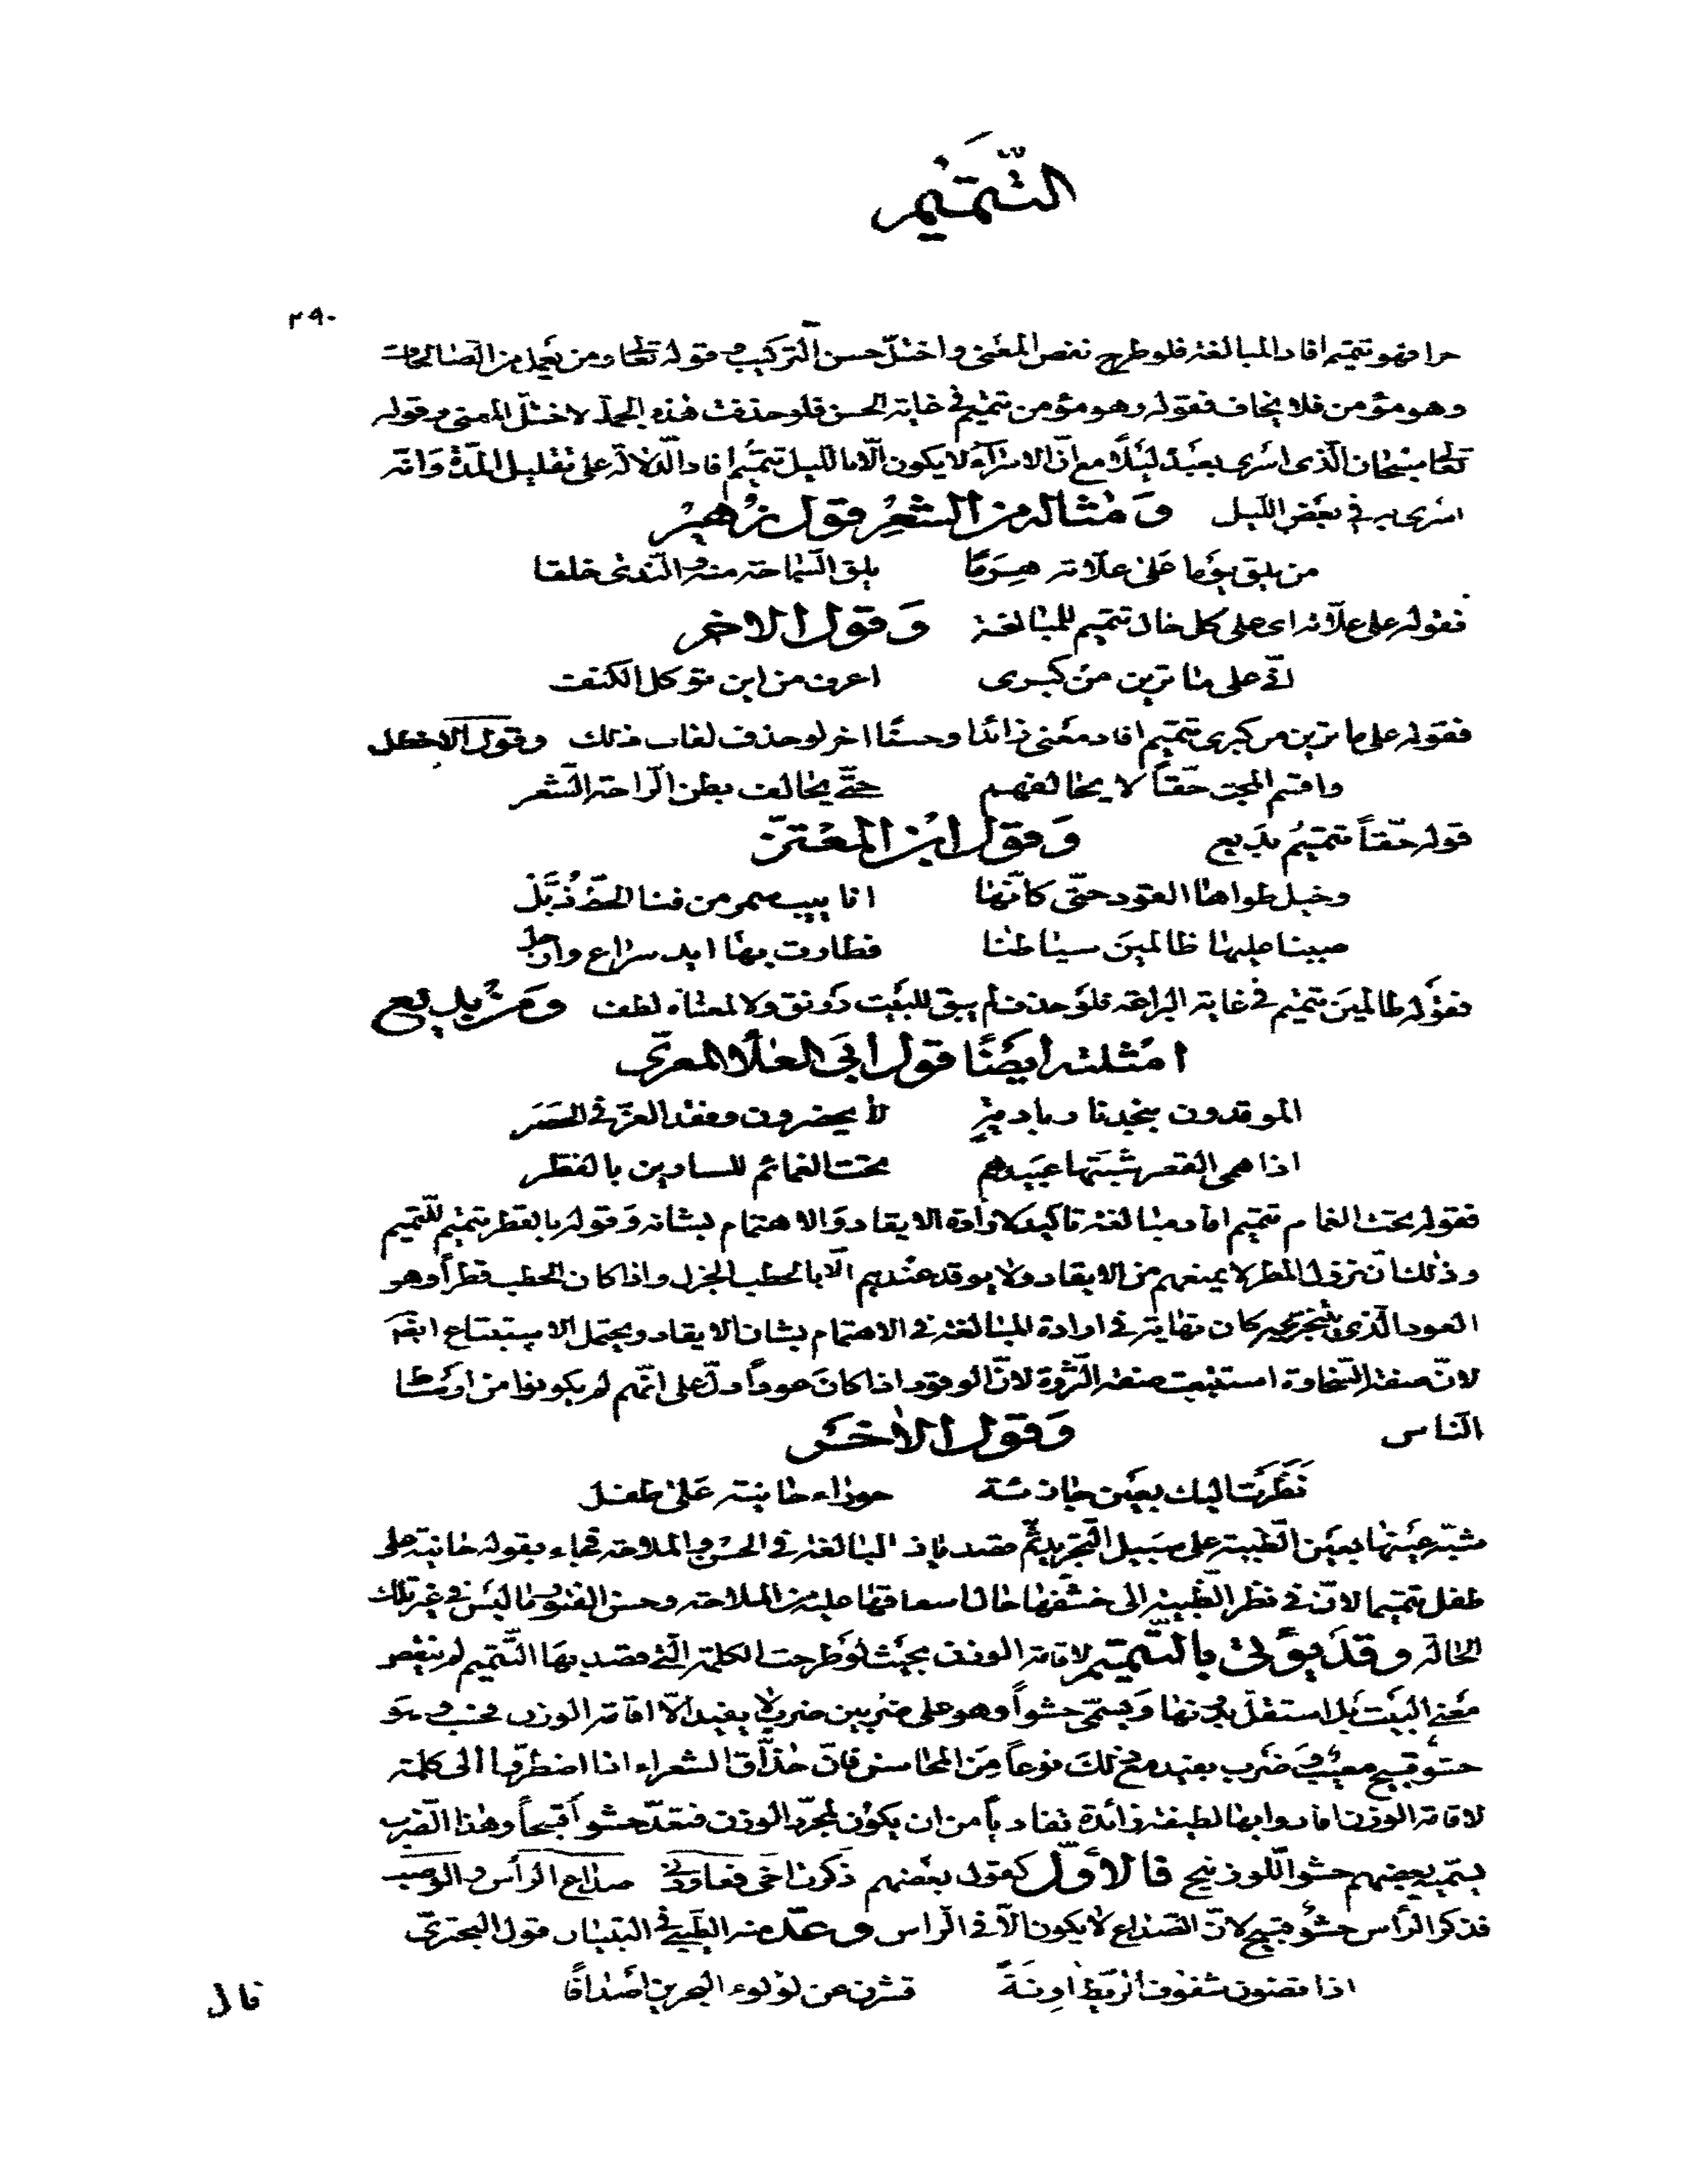 التَّتميم
٢٩٠
حرا فهو تتميم افاد المبالغة فلو طرح نقص المعنى واختلّ حسن التركيب وقوله تعالى ومن يعمل من الصالحات
وهو مؤمن فلا يخاف فقوله وهو مؤمن تتميم في غاية الحسن فلو حذفت هذه الجملة لاختلّ المعنى وقوله
تعالى سبحان الّذي اسرى بعبده ليلًا مع انّ الاسرآء لا يكون الّا بالليل تتميم افاد الدّلالة على تقليل المدّة وانّه
اسرى به في بعض الليل وَمثاله من الشعر قول زُهير
من يلق يومًا على علّاته هَرِمًا يلق السّماحة منه والنّدى خلقا
فقوله على علّاته اى على كل حال تتميم للمبالغة وَقول الاخر
انّي على ما ترين من كبرى اعرف من اين تؤكل الكتف
فقوله على ما ترين من كبرى تتميم افاد معنى زائدًا وحسنًا اخر لو حذف لغاب ذلك وقول الاخطل
واقسم المجد حقّاً لا يحالفهم حتّى يحالف بطن الرّاحة الشّعر
قوله حقّاً تتميمُ بديع وَقول ابن المعتزّ
وخيل طواها القود حتّى كانّها انابيب سمر من قنا الخطّ ذُبَّل
صببنا عليها ظالمينَ سياطنا فطارت بها ايد سراع وارجل
فقوله ظالمينَ تتميم في غاية البراعة فلو حذف لم يبق للبيت رونق ولا لمعناه لطف وَمن بديع
امثلته ايضًا قول ابى العلا المعرّى
الموقدون بنجد نار بادية لا يحضرون وفقد العزّ في الحضر
اذا همى القطر شبّتها عبيدهم تحت الغمائم للسارين بالقطر
فقوله تحت الغمام تتميم افاد مبالغة تاكيد لارادة الايقاد وَالاهتمام بشانه وَقوله بالقطر تتميم للتتميم
وذلك انّ نزول المطر لا يمنعهم من الايقاد ولا يوقد عندهم الّا بالحطب الجزل واذا كان الحطب قطراً وهو
العود الّذى يتبخّر به كان نهاية في ارادة المبالغة في الاهتمام بشان الايقاد ويحتمل الاستتباع ايضًا
لانّ صفة السّخاوة استتبعت صفة الثّروة لانّ الوقود اذا كان عوداً دلّ على انّهم لم يكونوا من اوساط
الناس وَقول الاخر
نَظَرَت اليك بعين جازئة حوراء حانية على طفل
شبّه عينها بعين الظّبية على سبيل التّجريد ثمّ قصد زيادة المبالغة في الحسن والملاحة فجاء بقوله حانية على
طفل تتميما لانّ في نظر الظّبية الى خشفها حال اسعافها عليه من الملاحة وحسن الفتور ما ليس في غير تلك
الحالة وقد يؤتى بالتّتميم لاقامة الوزن بحيث لو طرحت الكلمة الّتي قصد بها التّتميم لم ينقص
معنى البيت بل استقلّ بدونها وَيسمّى حشواً وهو على ضربين ضرب لا يفيد الّا اقامة الوزن فحسب وهو
حشو قبيح معيب وَضرب يفيد مع ذلكَ نوعاً مِن المحاسن فانّ حذّاق الشعراء اذا اضطرّوا الى كلمة
لاقامة الوزن افادوا بها لطيفة زائدة تفادياً من ان يكون لمجرّد الوزن فتعدّ حشواً قبيحاً وهذا الضّرب
يسمّيه بعضهم حشو اللّوزنيج فالاوّل كقول بعضهم ذكرت اخى فعاودني صداع الرأس والوصب
فذكر الرأس حشو قبيح لانّ الصّداع لا يكون الّا في الرّاس وعدّ منه الطّيبي في التبيان قول البحترى
اذا نضون شفوف الرّيط اونة قشرن عن لؤلؤء البحرين اصدافا
قال